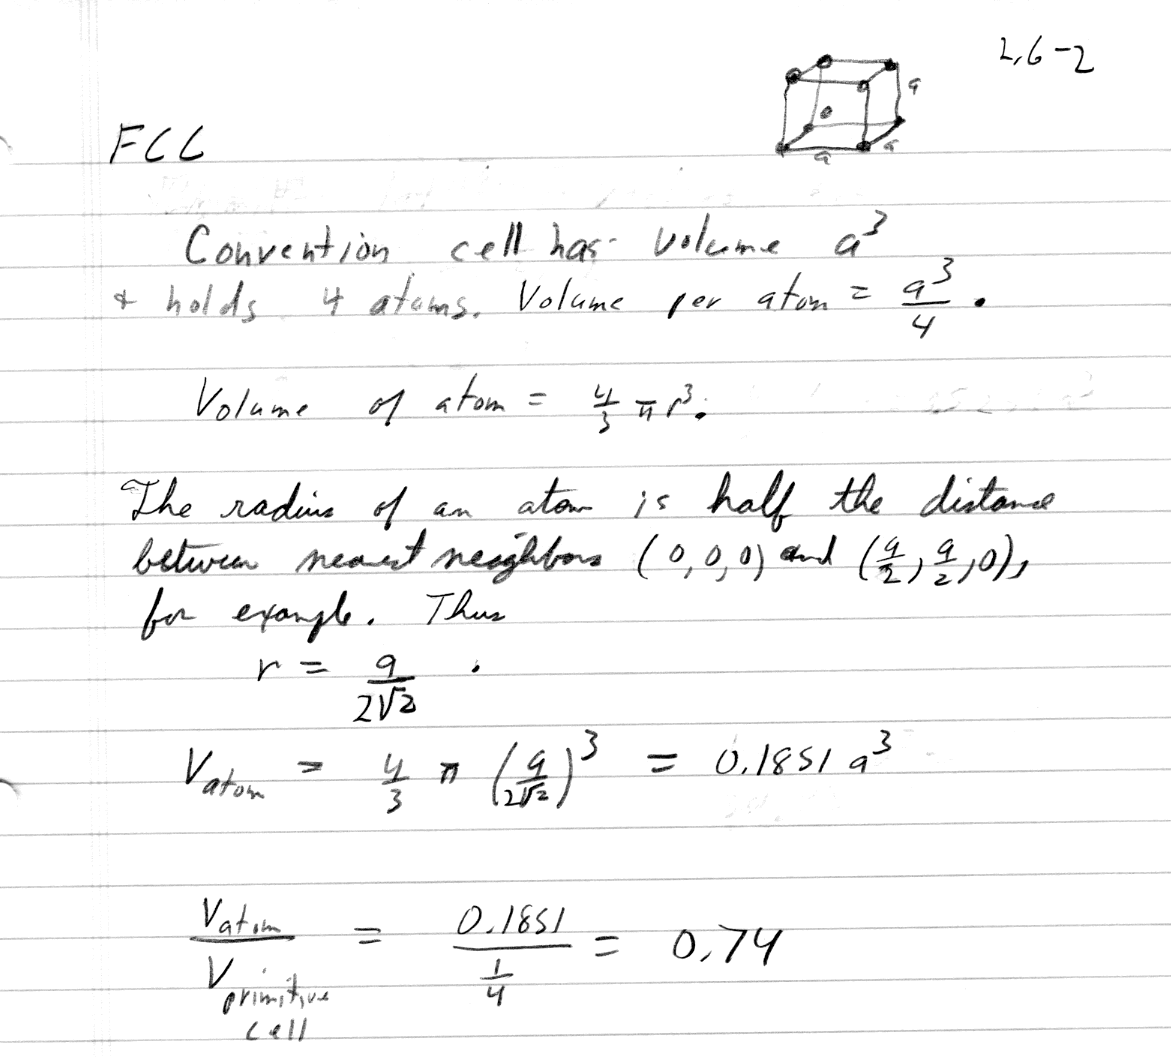 2.6-2
a
a
a
FCC
Convention cell has volume a³
+ holds 4 atoms. Volume per atom = a³/4 .
Volume of atom = 4/3 π r³.
The radius of an atom is half the distance
between nearest neighbors (0,0,0) and (a/2, a/2, 0),
for example. Thus
r = a/2√2 .
V atom = 4/3 π (a/2√2)³ = 0.1851 a³
V atom / V primitive cell = 0.1851 / 1/4 = 0.74